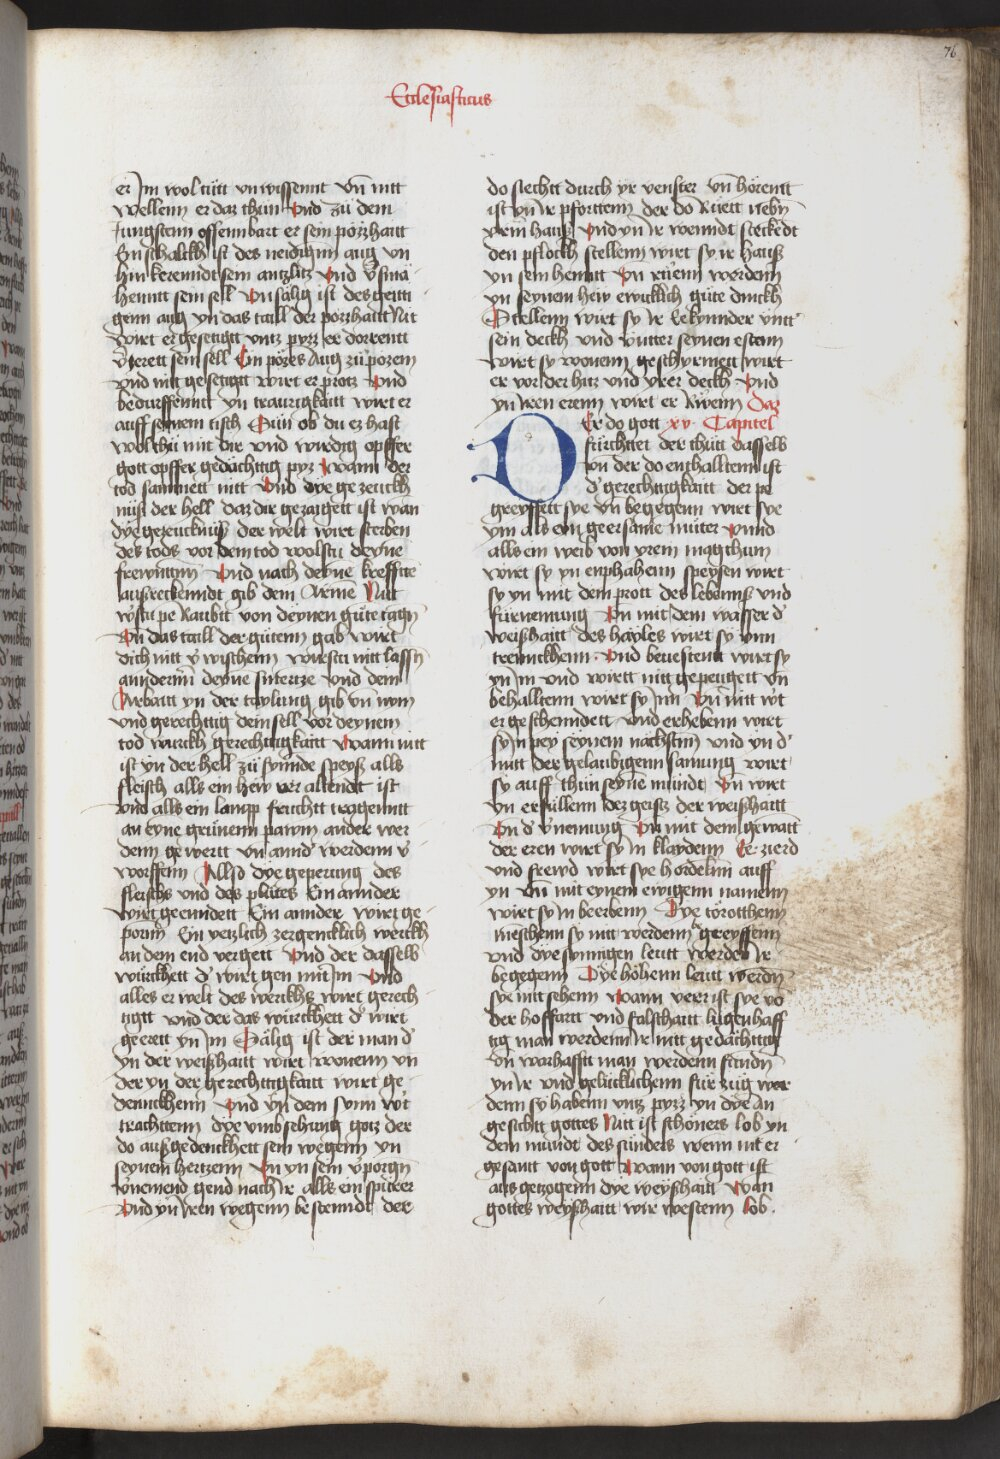 76
Ecclesiasticus
er Jm wol tütt vnwissennt vn̄ nitt
wellenn er daz thun Vnd zü dem
Jungstenn offennbart er sein pözzhaitt
Ein schalckh ist des neidigin̄ aug vn̄
hin kerenndt sein antzlitz Vnd v̄sma
hennt sein sell Vnsälig ist des geitti
genn aug vn̄ das taill der pozzhaitt Nit
wirt er gesettigtt vntz pyzz er dorrentt
v̄zerett sein sell Ein pözes Aug zü pozem
vnd nitt gesettigtt wirt er protz Vnd
bedurffenntt yn traurigkaitt wirt er
auff seinem tisch Sün ob du ez hast
wol thü mit dir vnd wirdig opffer
gott opffer gedächttig pyz wann der
tod sammett nitt Vnd dye gezeuckh
nüß der hell daz dir gezaigett ist wan
dye gezeucknüß der welt wirt sterben
des tods vor dem tod wolstu deyne
frewnttin̄ Vnd nach deyne krefftte
ausreckenndt gib dem Arme̅ Nitt
w̓stu pe Raubtt von deynen güte tagn̄
Vn̄ das taill der gütenn gab wirt
dich nitt v̄wischenn wirstu nitt lassn̄
anndern̄n deyne smertze Vnd dein
Arbaitt yn der taylung gib vn̄ nym
vnd gerechttig dein sell vor deynem
tod würckh gerechttigkaitt Wann nitt
ist yn der hell zü fynnde speyß alls
fleisch alls ein hew ver altendt ist
vnd alls ein lanpp fruchtt traggenntt
an eyne grünenn pawm ander wer
denn ge wertt vn̄ annd̓ werdenn v̄
worffenn Allso dye geperung des
fleischs vnd des plütes Ein annder
wirt geenndett Ein annder wirt ge
porn̄ Ein yetzlich zergencklich werckh
an dem end vergett Vnd der dasselb
würckhett d̓ wirt gen mit Jm Vnd
alles er welt des werckhs wirt gerech
tigtt vnd der das würckhett d̓ wirt
geerett yn Jm Sälig ist der man d̓
yn der weißhaitt wirt wonenn vn̄
der yn der gerechttigkaitt wirt ge
denckhenn Vnd yn dem synn w̓t
trachttenn dye vmbsehung gotz der
do außgedenckhett sein wegenn yn
seynem hertzenn Vn̄ yn sein v̄porgn̄
v̄nemend gend nach Jr alls ein spürer
Vnd yn Jren wegenn bestenndt der
do siechtt durch yr venster vn̄ hörentt
ist yn Jr pforttenn der do Rüett nebn̄
yrem hauß Vnd yn Jr wenndt steckedt
den pflöckh stellenn wirt sy ir hauß
yn sein henntt Vn̄ rüenn werdenn
yn seynem hew ewicklich güte dinckh
Stellenn wirt sy Jr kynnder vntt̓
sein deckh vnd vntter seynen estenn
wirt sy wonenn geschyrmett wirt
er vor der hitz vnd yrer deckh Vnd
yn Jren erenn wirt er Rwenn Daz
Er do gott xv Capitel
D fürchttet der thütt dasselb
vn̄ der do enthalltenn ist
d̓ gerechttigkaitt der pe
greyffett sye vn̄ begegenn wirt sye
ym als ein geersame mütter Vnnd
alls ein weib von yrem magthum
wirt sy yn enphahenn speysen wirt
sy yn mit dem prott des lebenns vnd
fürnemung Vn̄ mit dem wasser d̓
weißhaitt des hayles wirt sy ynn
trennckhenn Vnd bevestentt wirt sy
yn Jm vnd wirtt nitt gepeugett vn̄
behalltenn wirt sy Jnn Vn̄ nitt w̓t
er geschenndett vnd erhebenn wirt
sy Jn pey seynem nächstn̄ vnd yn d̓
mitt der gelaubigenn samung wirt
sy auff thün seyne mündt Vn̄ wirt
yn erfüllenn dez geistz der weißhaitt
Vn̄ d̓ v̄nemung Vn̄ mit dem gewantt
der eren wirt sy in klaydenn Er zierd
vnd frewd wirt sye hordelnn auff
yn vn̄ mit eynem ewigenn namenn
wirt sy Jn beerbenn Dye törotthenn
meschenn sy nitt werdenn greyffenn
vnd dye synnigen leutt werden Jr
begegenn Dye höhenn leutt werdn̄
sye nitt sehenn Wann verr ist sye vo
der hoffartt vnd falschaitt lugenhaff
tig man werdenn Jr nitt gedächttig
vn̄ warhafftt man werdenn fundn̄
yn Jr vnd gelücklichenn für züg wer
denn sy habenn vntz pyzz yn dye an
gesichtt gottes Nitt ist schöners lob yn
dem mündt des sünders wenn nit er
gesantt von gott Wann von gott ist
aus getzogenn dye weyßhaitt Wan
gottes weyßhaitt wir westenn lob